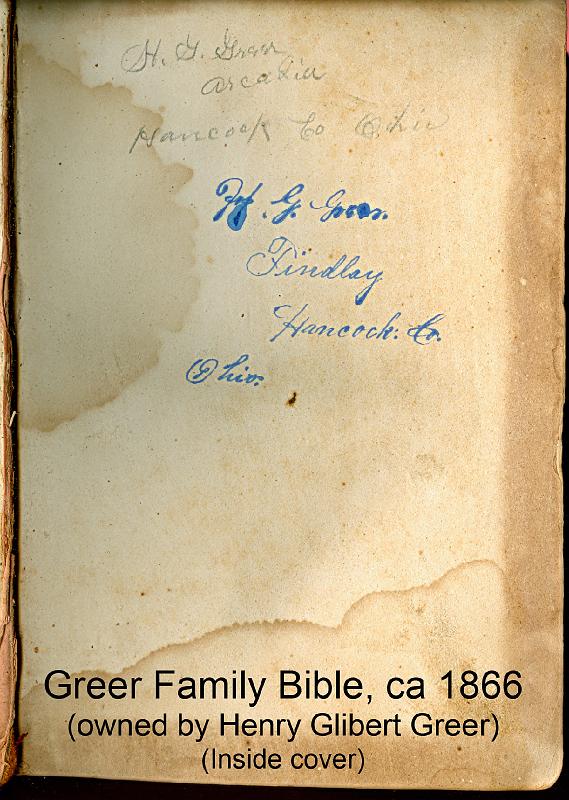 H. G. Greer
Arcadia
Hancock Co Ohio
H. G. Greer.
Findlay
Hancock. Co.
Ohio.
Greer Family Bible, ca 1866
(owned by Henry Glibert Greer)
(Inside cover)